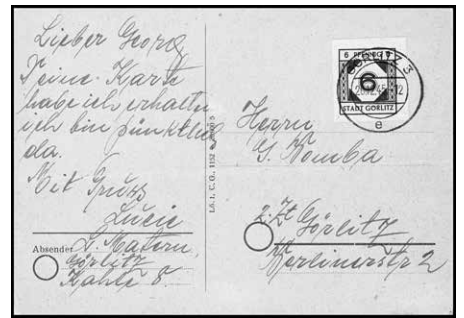 Lieber Georg
Deine Karte
habe ich erhalten
ich bin pünktlich
da.
Mit Gruß
Lucie
Absender L. Matern
Görlitz
Kahle 8.
6 PFENNIG 6
6
STADT GÖRLITZ
GÖRLITZ 3
e
Herrn
G. Womba
z. Zt Görlitz
Berlinerstr 2